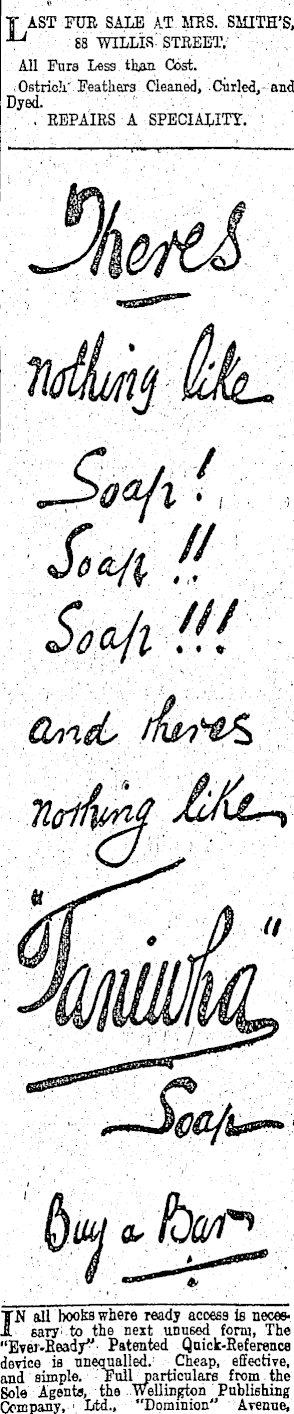 LAST FUR SALE AT MRS. SMITH'S,
88 WILLIS STREET.
All Furs Less than Cost.
Ostrich Feathers Cleaned, Curled, and
Dyed.
REPAIRS A SPECIALITY.
Theres
nothing like
Soap!
Soap!!
Soap!!!
and theres
nothing like
"Taniwha"
Soap
Buy a Bar
IN all books where ready access is neces-
sary to the next unused form, The
"Ever-Ready" Patented Quick-Reference
device is unequalled. Cheap, effective,
and simple. Full particulars from the
Sole Agents, the Wellington Publishing
Company, Ltd., "Dominion" Avenue,